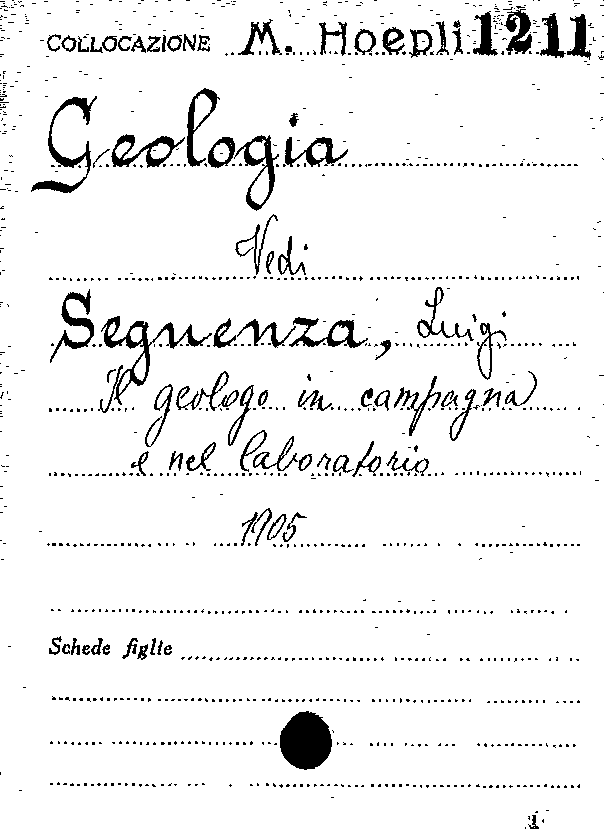 COLLOCAZIONE M. Hoepli 1211
Geologia
Vedi
Seguenza, Luigi
Il geologo in campagna
e nel laboratorio
1905
Schede figlie